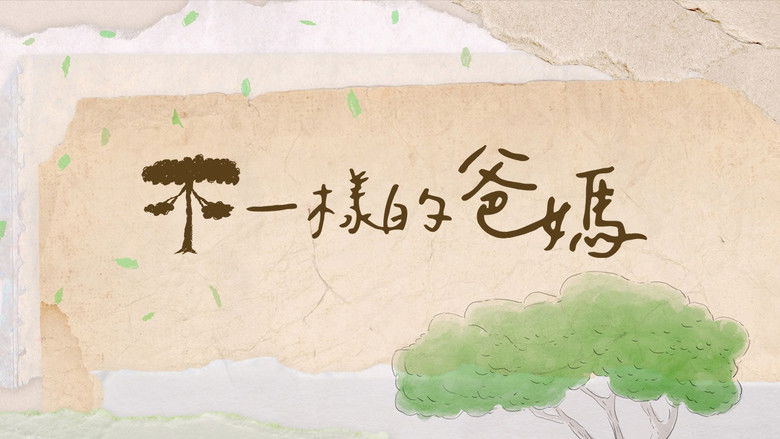 不一樣的爸媽